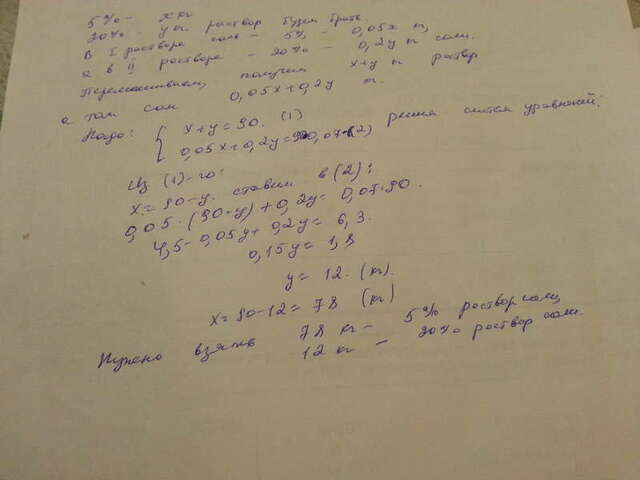 5% - x кг
20% - y кг раствор будем брать.
В I растворе соль - 5% - 0,05x кг,
а в II растворе - 20% - 0,2y кг соли.
Перемешиваем, получим x+y кг раствор
а там соли 0,05x+0,2y кг.
Надо: { x+y=90. (1)
0,05x+0,2y=90·0,07 (2) решим систем уравнений:
Из (1)-го:
x=90-y. ставим в (2):
0,05·(90-y)+0,2y=0,07·90.
4,5-0,05y+0,2y=6,3.
0,15y=1,8
y=12. (кг).
x=90-12=78 (кг)
Нужно взять 78 кг - 5% раствор соли,
12 кг - 20% раствор соли.